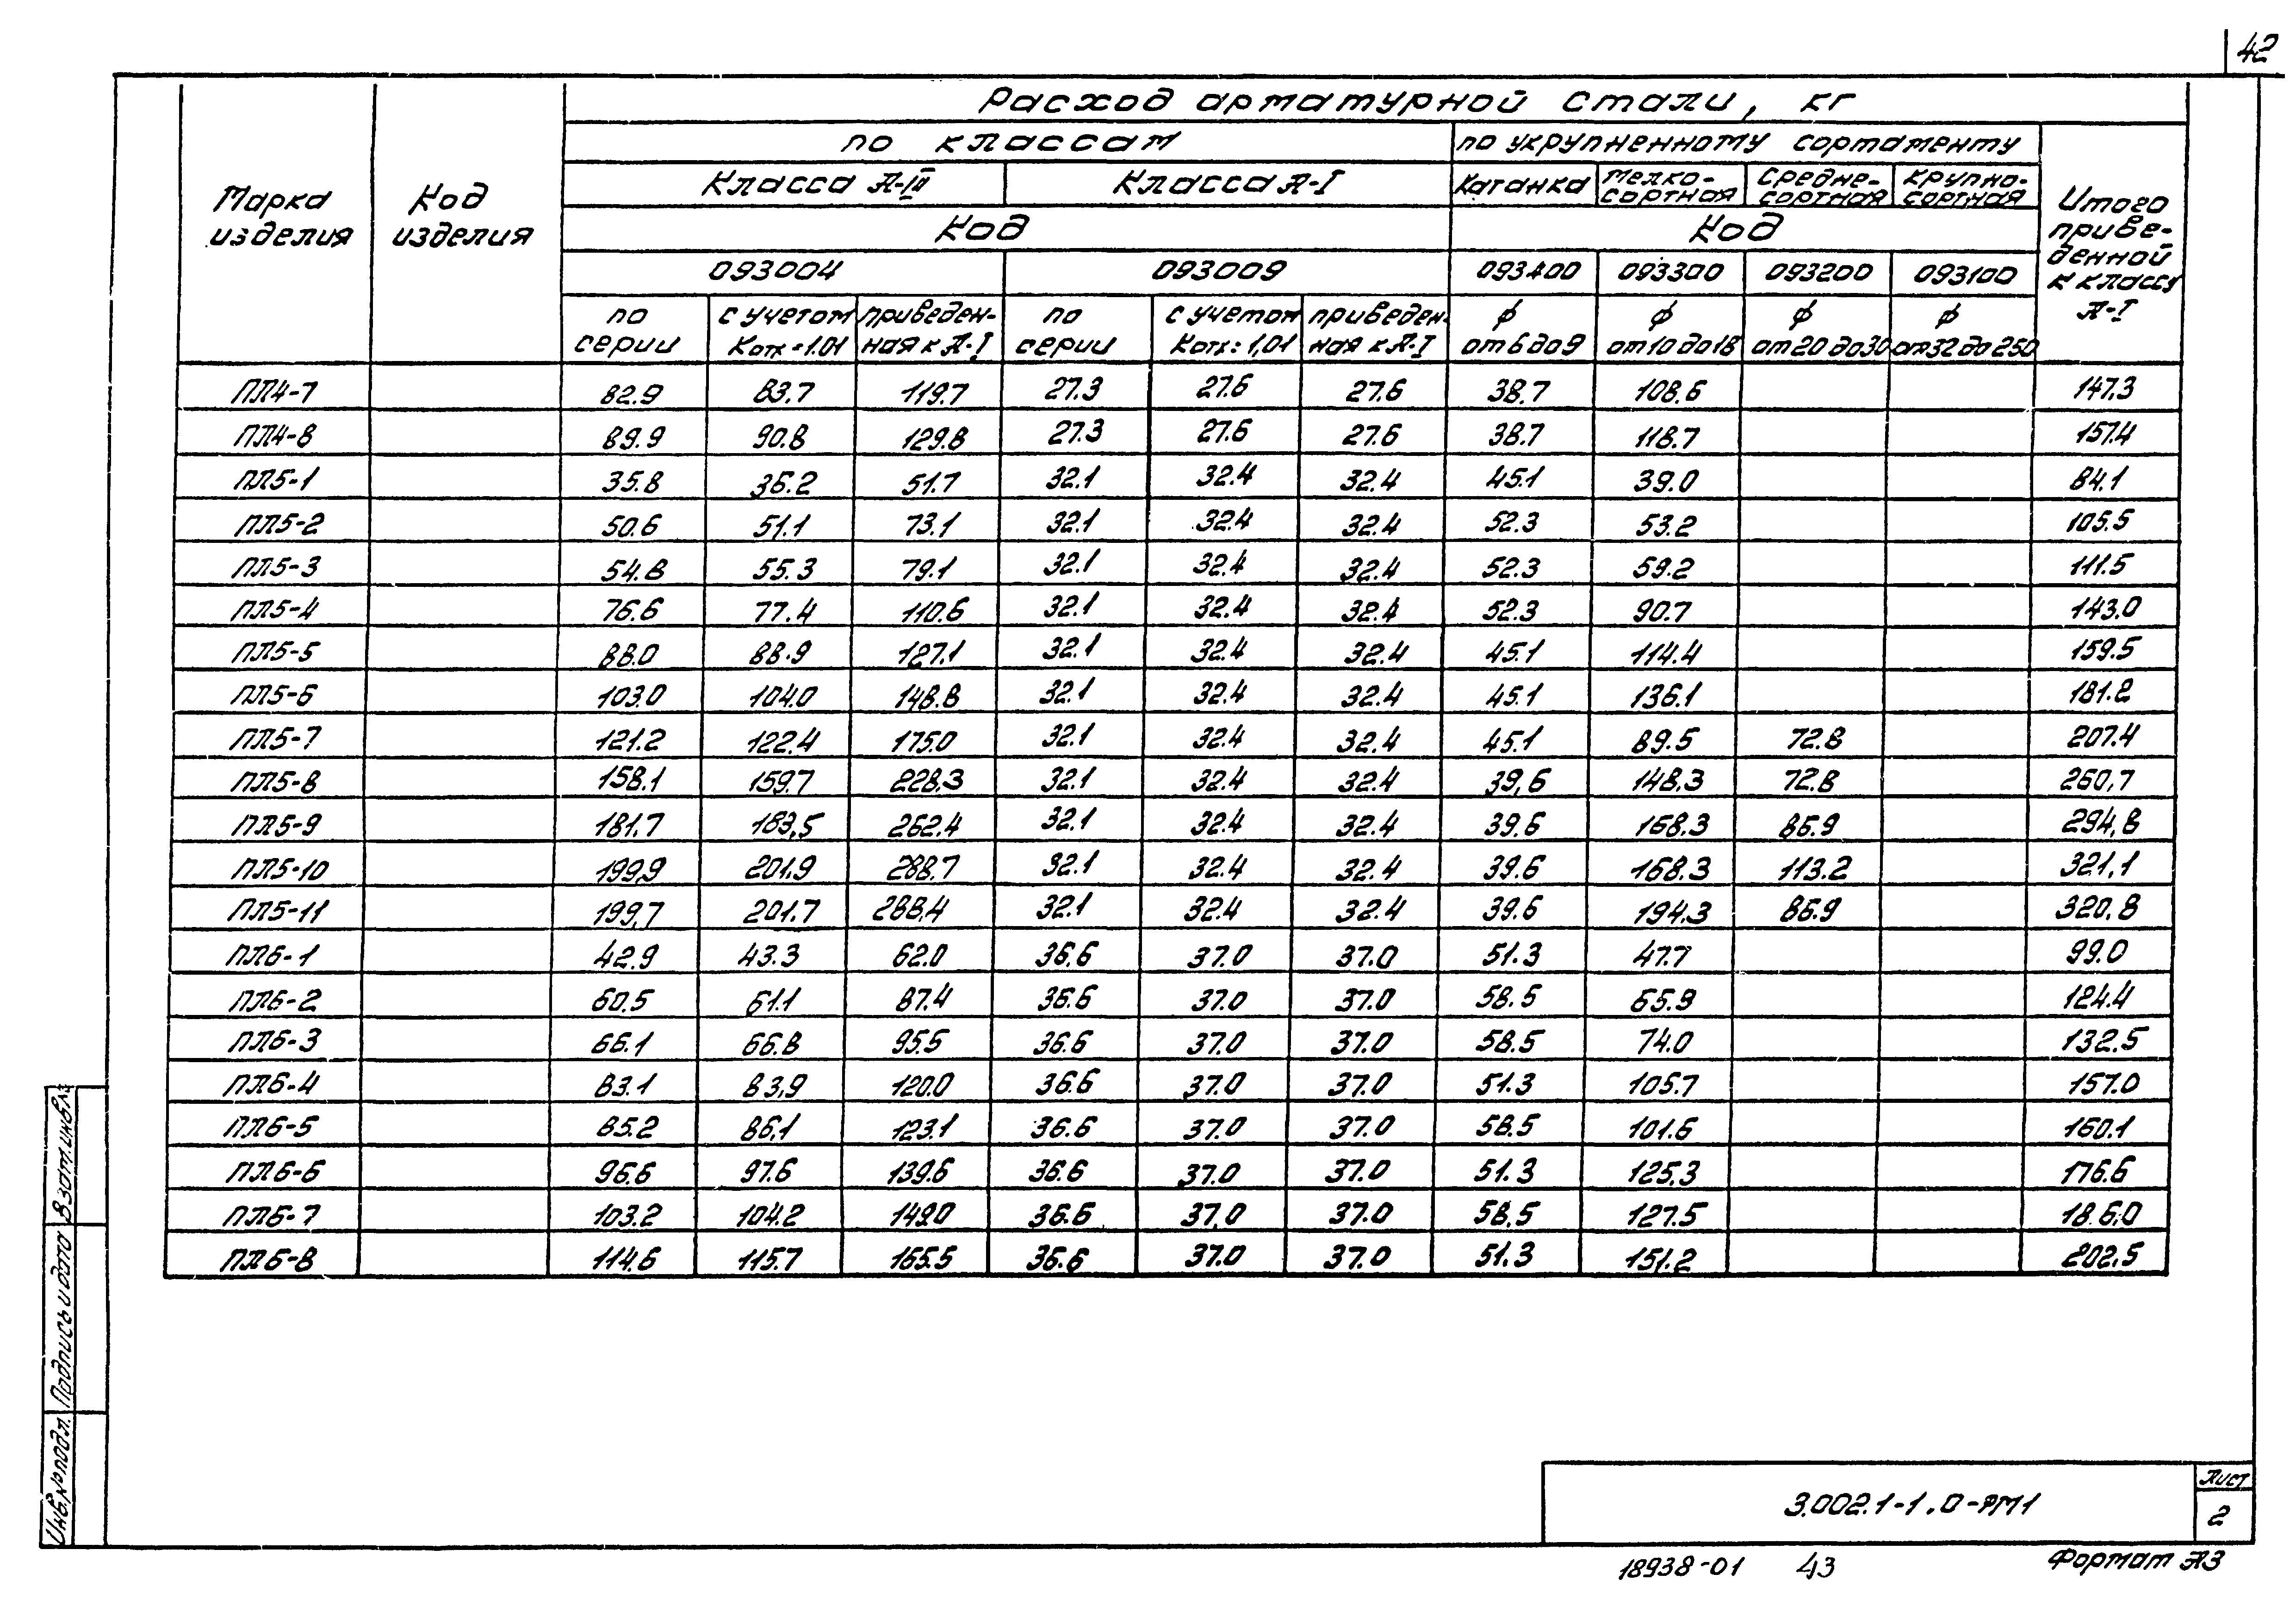 42
Расход арматурной стали, кг
по классам
по укрупненному сортаменту
Марка изделия
Код изделия
Класса А-III
Класса А-I
Катанка
Мелко-сортная
Средне-сортная
Крупно-сортная
Итого приве-денной к классу А-I
Код
Код
093004
093009
093400
093300
093200
093100
по серии
с учетом Kотх=1.01
приведен-ная к А-I
по серии
с учетом Kотх=1,01
приведен-ная к А-I
ϕ от 6 до 9
ϕ от 10 до 18
ϕ от 20 до 30
ϕ от 32 до 250
ПЛ4-7 82.9 83.7 119.7 27.3 27.6 27.6 38.7 108.6 147.3
ПЛ4-8 89.9 90.8 129.8 27.3 27.6 27.6 38.7 118.7 157.4
ПЛ5-1 35.8 36.2 51.7 32.1 32.4 32.4 45.1 39.0 84.1
ПЛ5-2 50.6 51.1 73.1 32.1 32.4 32.4 52.3 53.2 105.5
ПЛ5-3 54.8 55.3 79.1 32.1 32.4 32.4 52.3 59.2 111.5
ПЛ5-4 76.6 77.4 110.6 32.1 32.4 32.4 52.3 90.7 143.0
ПЛ5-5 88.0 88.9 127.1 32.1 32.4 32.4 45.1 114.4 159.5
ПЛ5-6 103.0 104.0 148.8 32.1 32.4 32.4 45.1 136.1 181.2
ПЛ5-7 121.2 122.4 175.0 32.1 32.4 32.4 45.1 89.5 72.8 207.4
ПЛ5-8 158.1 159.7 228.3 32.1 32.4 32.4 39,6 148.3 72.8 260,7
ПЛ5-9 181,7 183,5 262.4 32.1 32.4 32.4 39.6 168.3 86.9 294,8
ПЛ5-10 199,9 201.9 288.7 32.1 32.4 32.4 39.6 168.3 113.2 321,1
ПЛ5-11 199,7 201.7 288,4 32.1 32.4 32.4 39.6 194.3 86.9 320.8
ПЛ6-1 42.9 43.3 62.0 36.6 37.0 37.0 51.3 47.7 99.0
ПЛ6-2 60.5 61.1 87.4 36.6 37.0 37.0 58.5 65.9 124.4
ПЛ6-3 66.1 66.8 95.5 36.6 37.0 37.0 58.5 74.0 132.5
ПЛ6-4 83.1 83,9 120.0 36.6 37.0 37.0 51.3 105.7 157.0
ПЛ6-5 85.2 86,1 123.1 36.6 37.0 37.0 58.5 101.6 160.1
ПЛ6-6 96.6 97.6 139.6 36.6 37.0 37.0 51.3 125.3 176.6
ПЛ6-7 103.2 104.2 149.0 36.6 37.0 37.0 58.5 127.5 186.0
ПЛ6-8 114.6 115.7 165.5 36.6 37.0 37.0 51.3 151.2 202.5
Взат.инв.№
Подпись и дата
Инв.№подл.
3.002.1-1.0-РМ1
Лист
2
18938-01 43
Формат А3